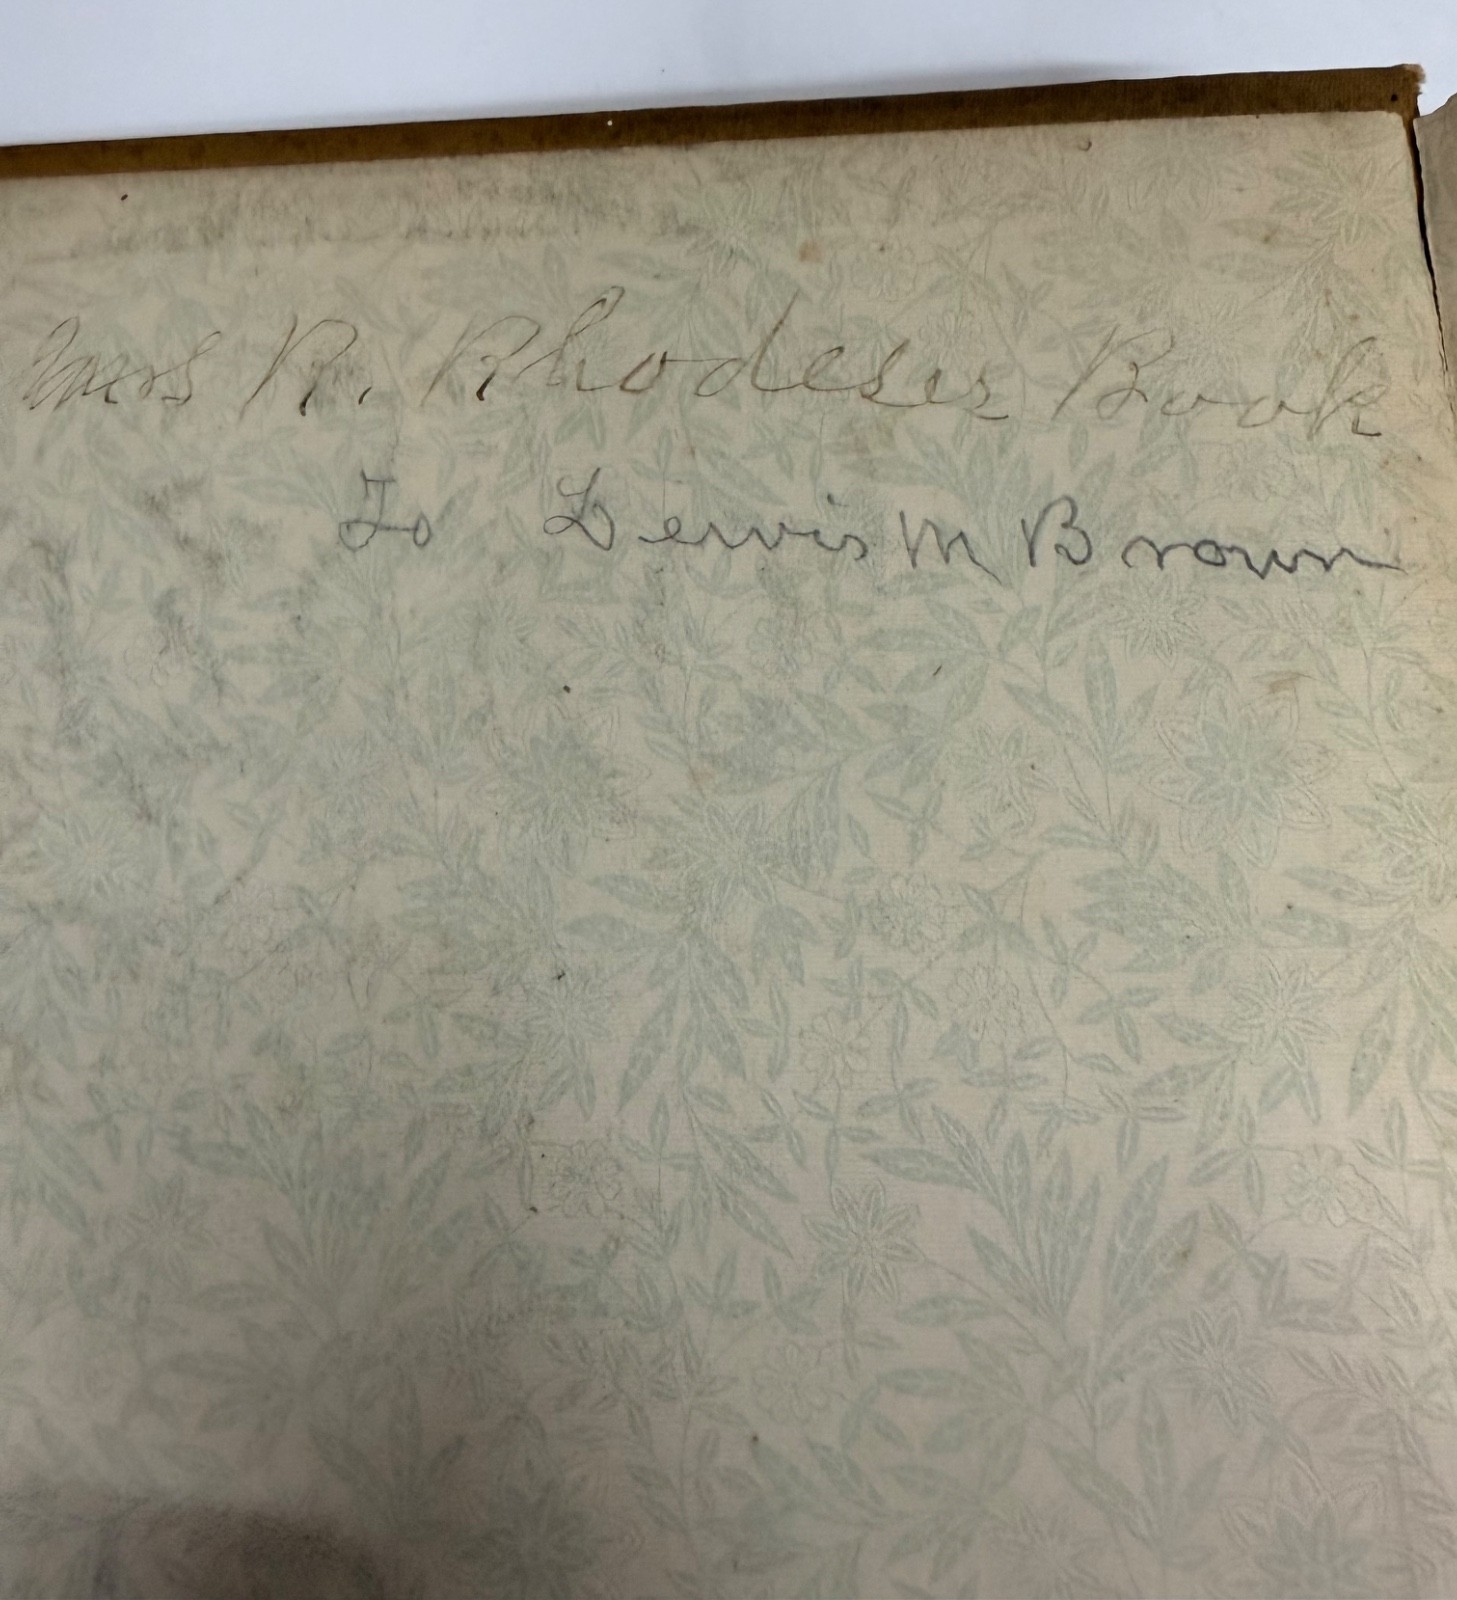 Mrs R. Rhodeser Book
To Lewis M Brown